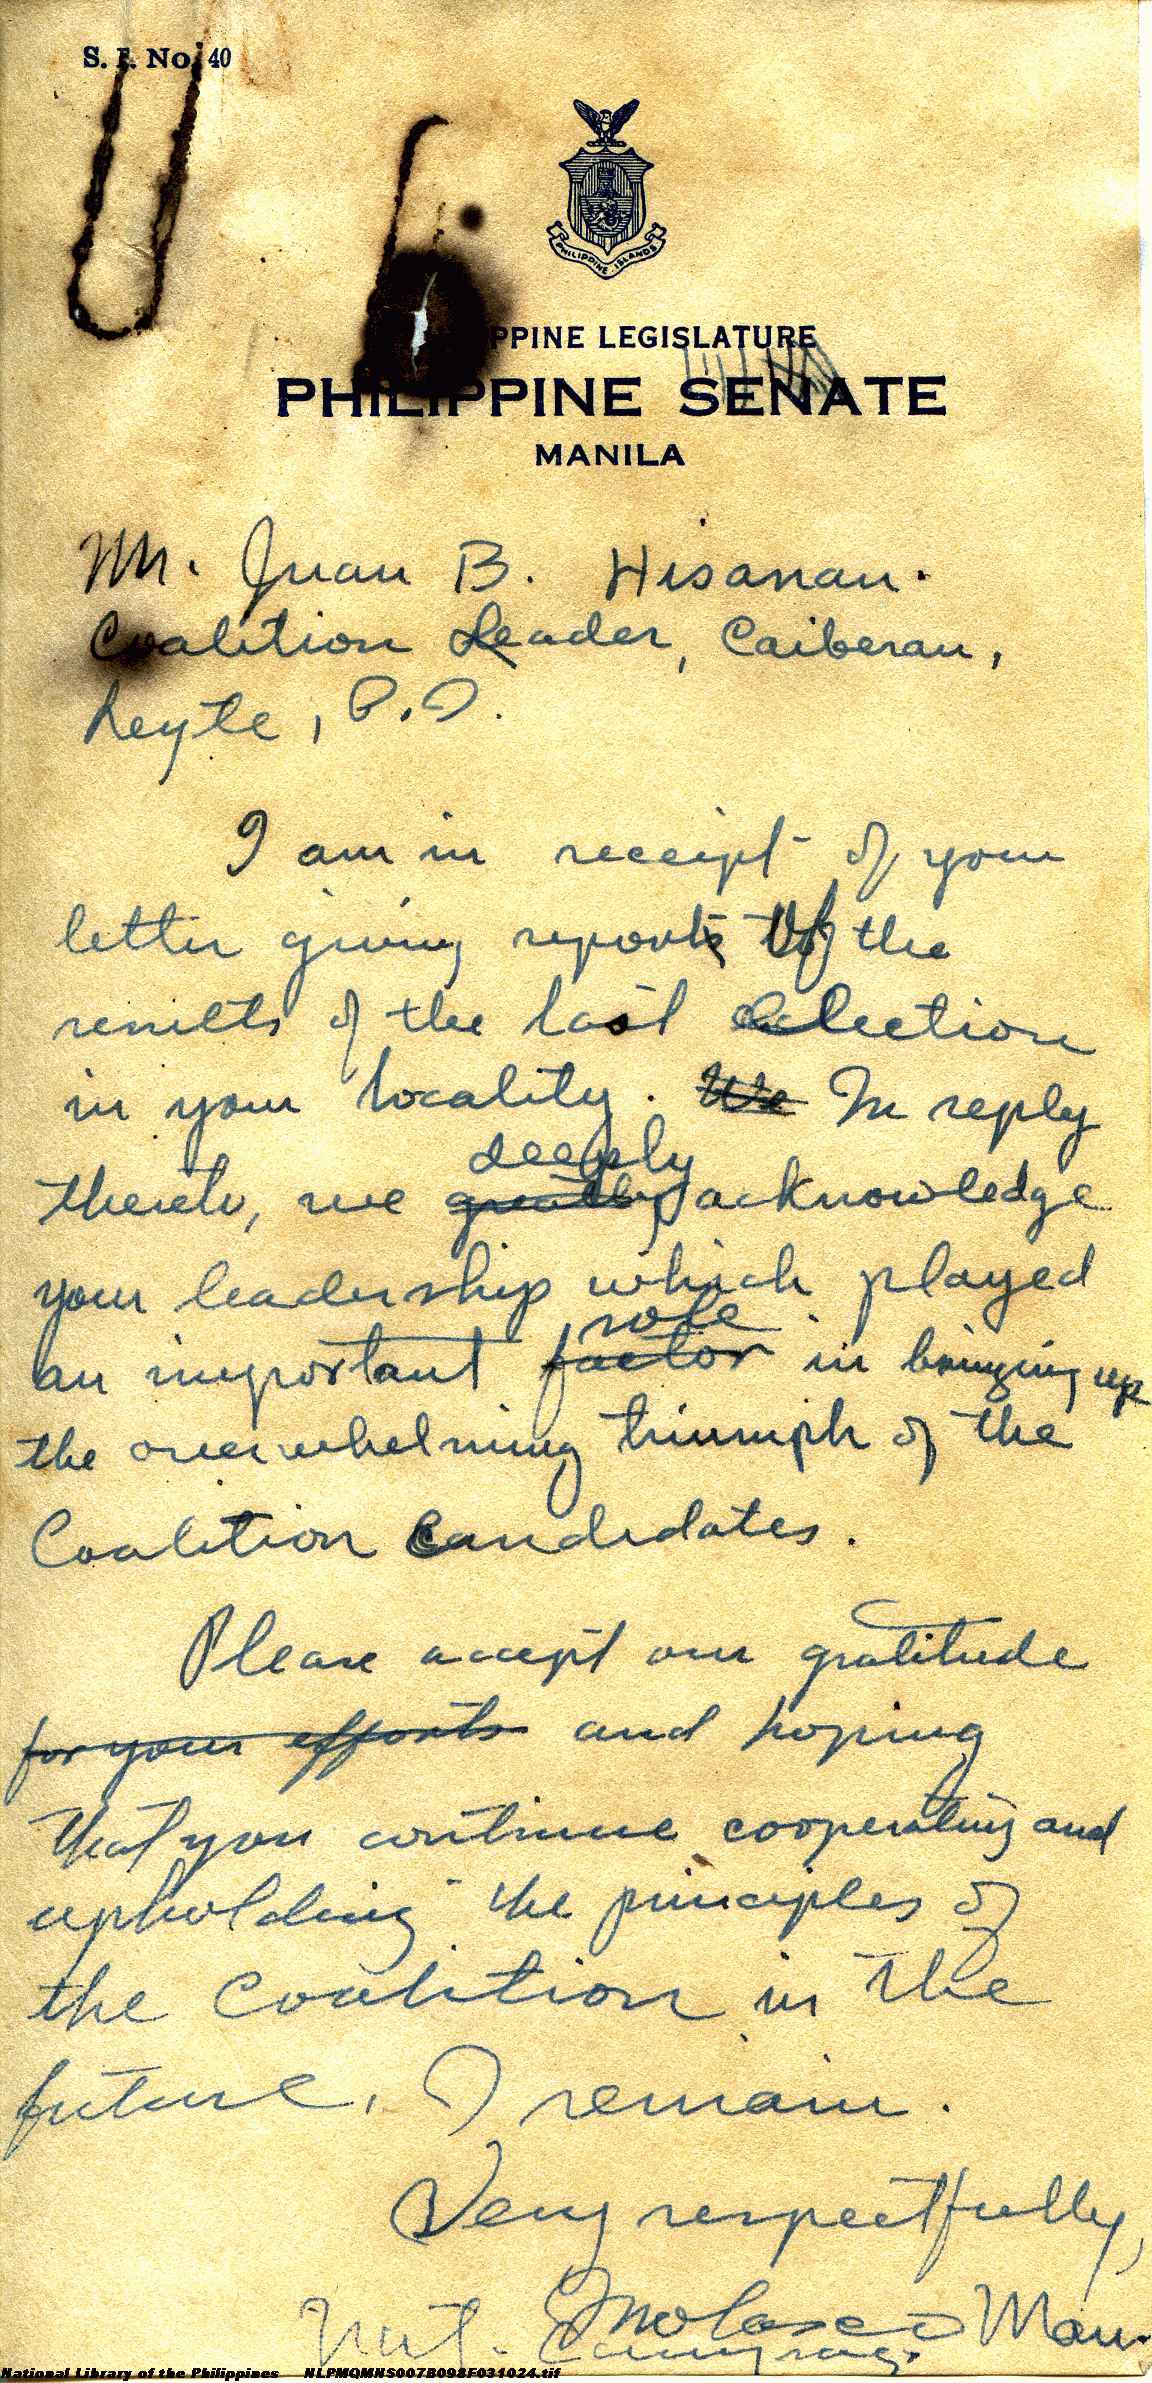 S. F. No. 40
PHILIPPINE ISLANDS
PPINE LEGISLATURE
PHILIPPINE SENATE
MANILA
Mr. Juan B. Hisanan.
Coalition Leader, Caiberan,
Leyte, P.I.
I am in receipt of your
letter giving reports of the
results of the last election
in your locality. We In reply
deeply
thereto, we greatly acknowledge
your leadership which played
role
an important factor in bringing up
the overwhelming triumph of the
Coalition candidates.
Please accept our gratitude
for your efforts and hoping
that you continue cooperating and
upholding the principles of
the Coalition in the
future, I remain.
Very respectfully,
Man.
Nat.
National Library of the Philippines NLPMQMNS007B098F031024.tif